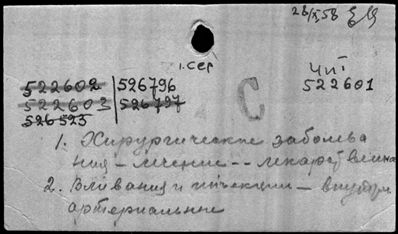 26/X 58
1. сер
чит
522602 526796
522601
522603 526797
526523
С
1. Хирургические заболева
ния - лечение -- лекарственна
2. Вливания и инъекции - внутри
артериальные